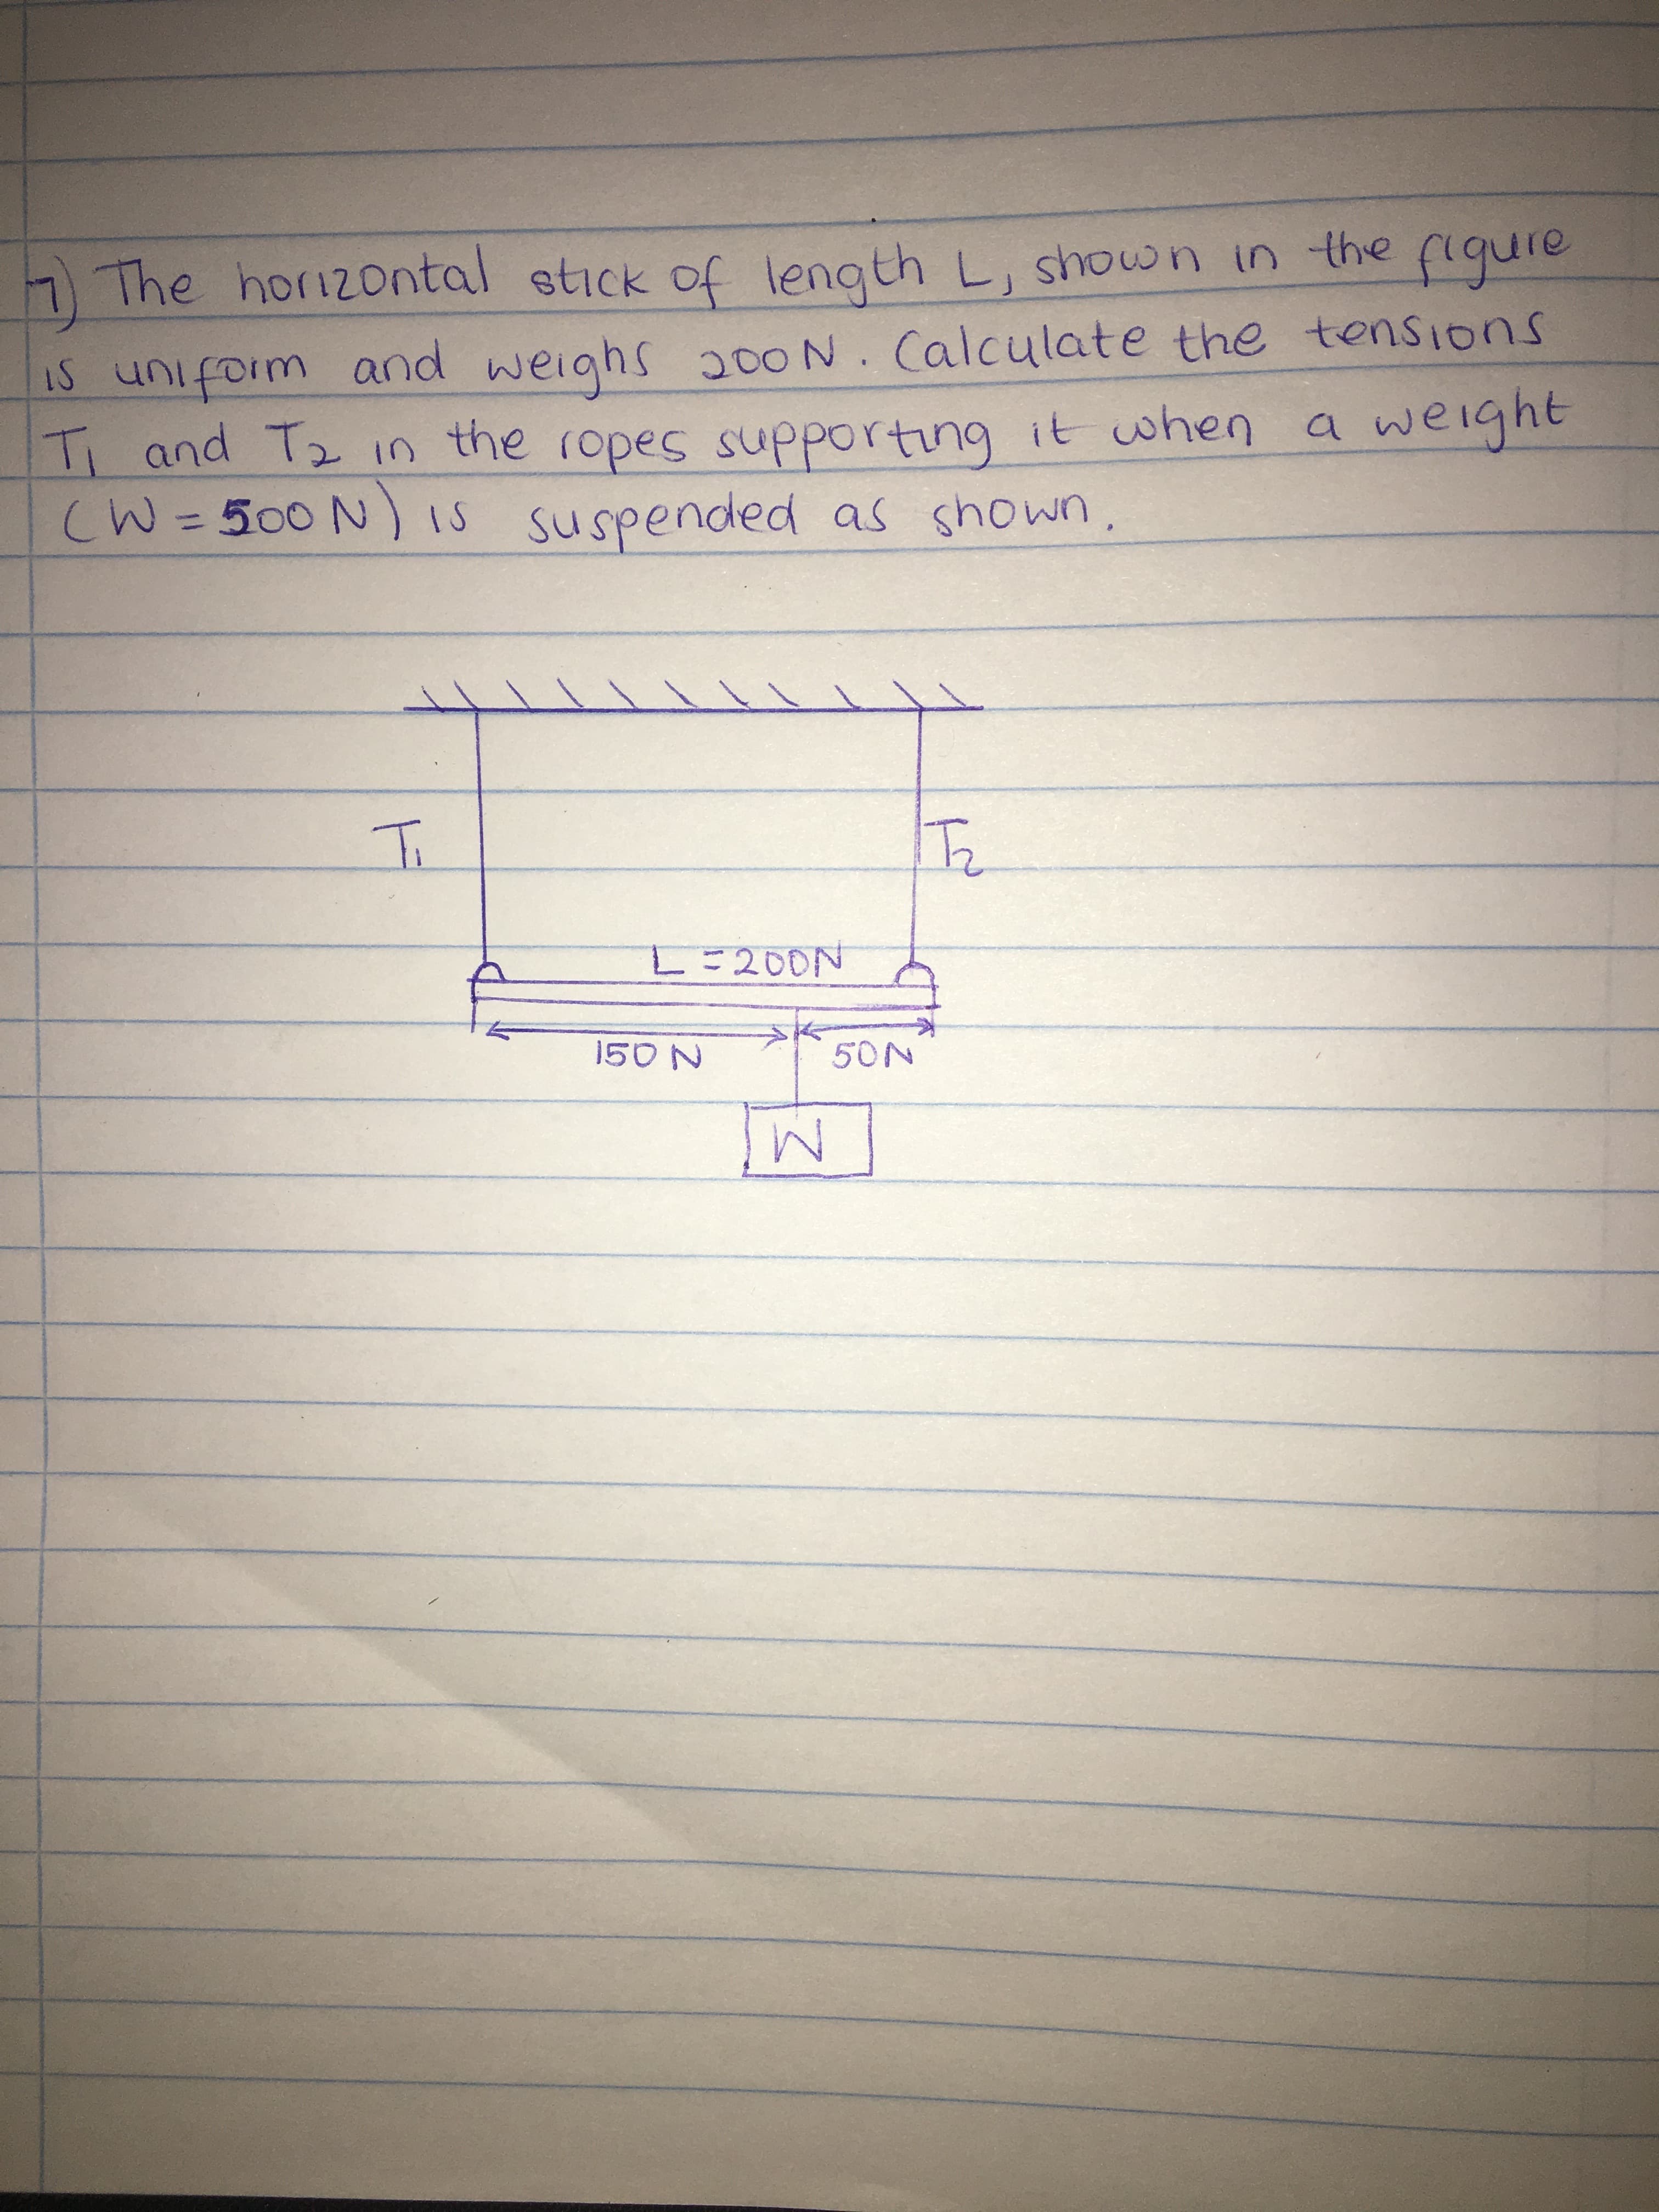 7) The horizontal stick of length L, shown in the figure
is uniform and weighs 200N. Calculate the tensions
T1 and T2 in the ropes supporting it when a weight
(W = 500N) is suspended as shown.
T1
T2
L = 200N
150N
50N
W